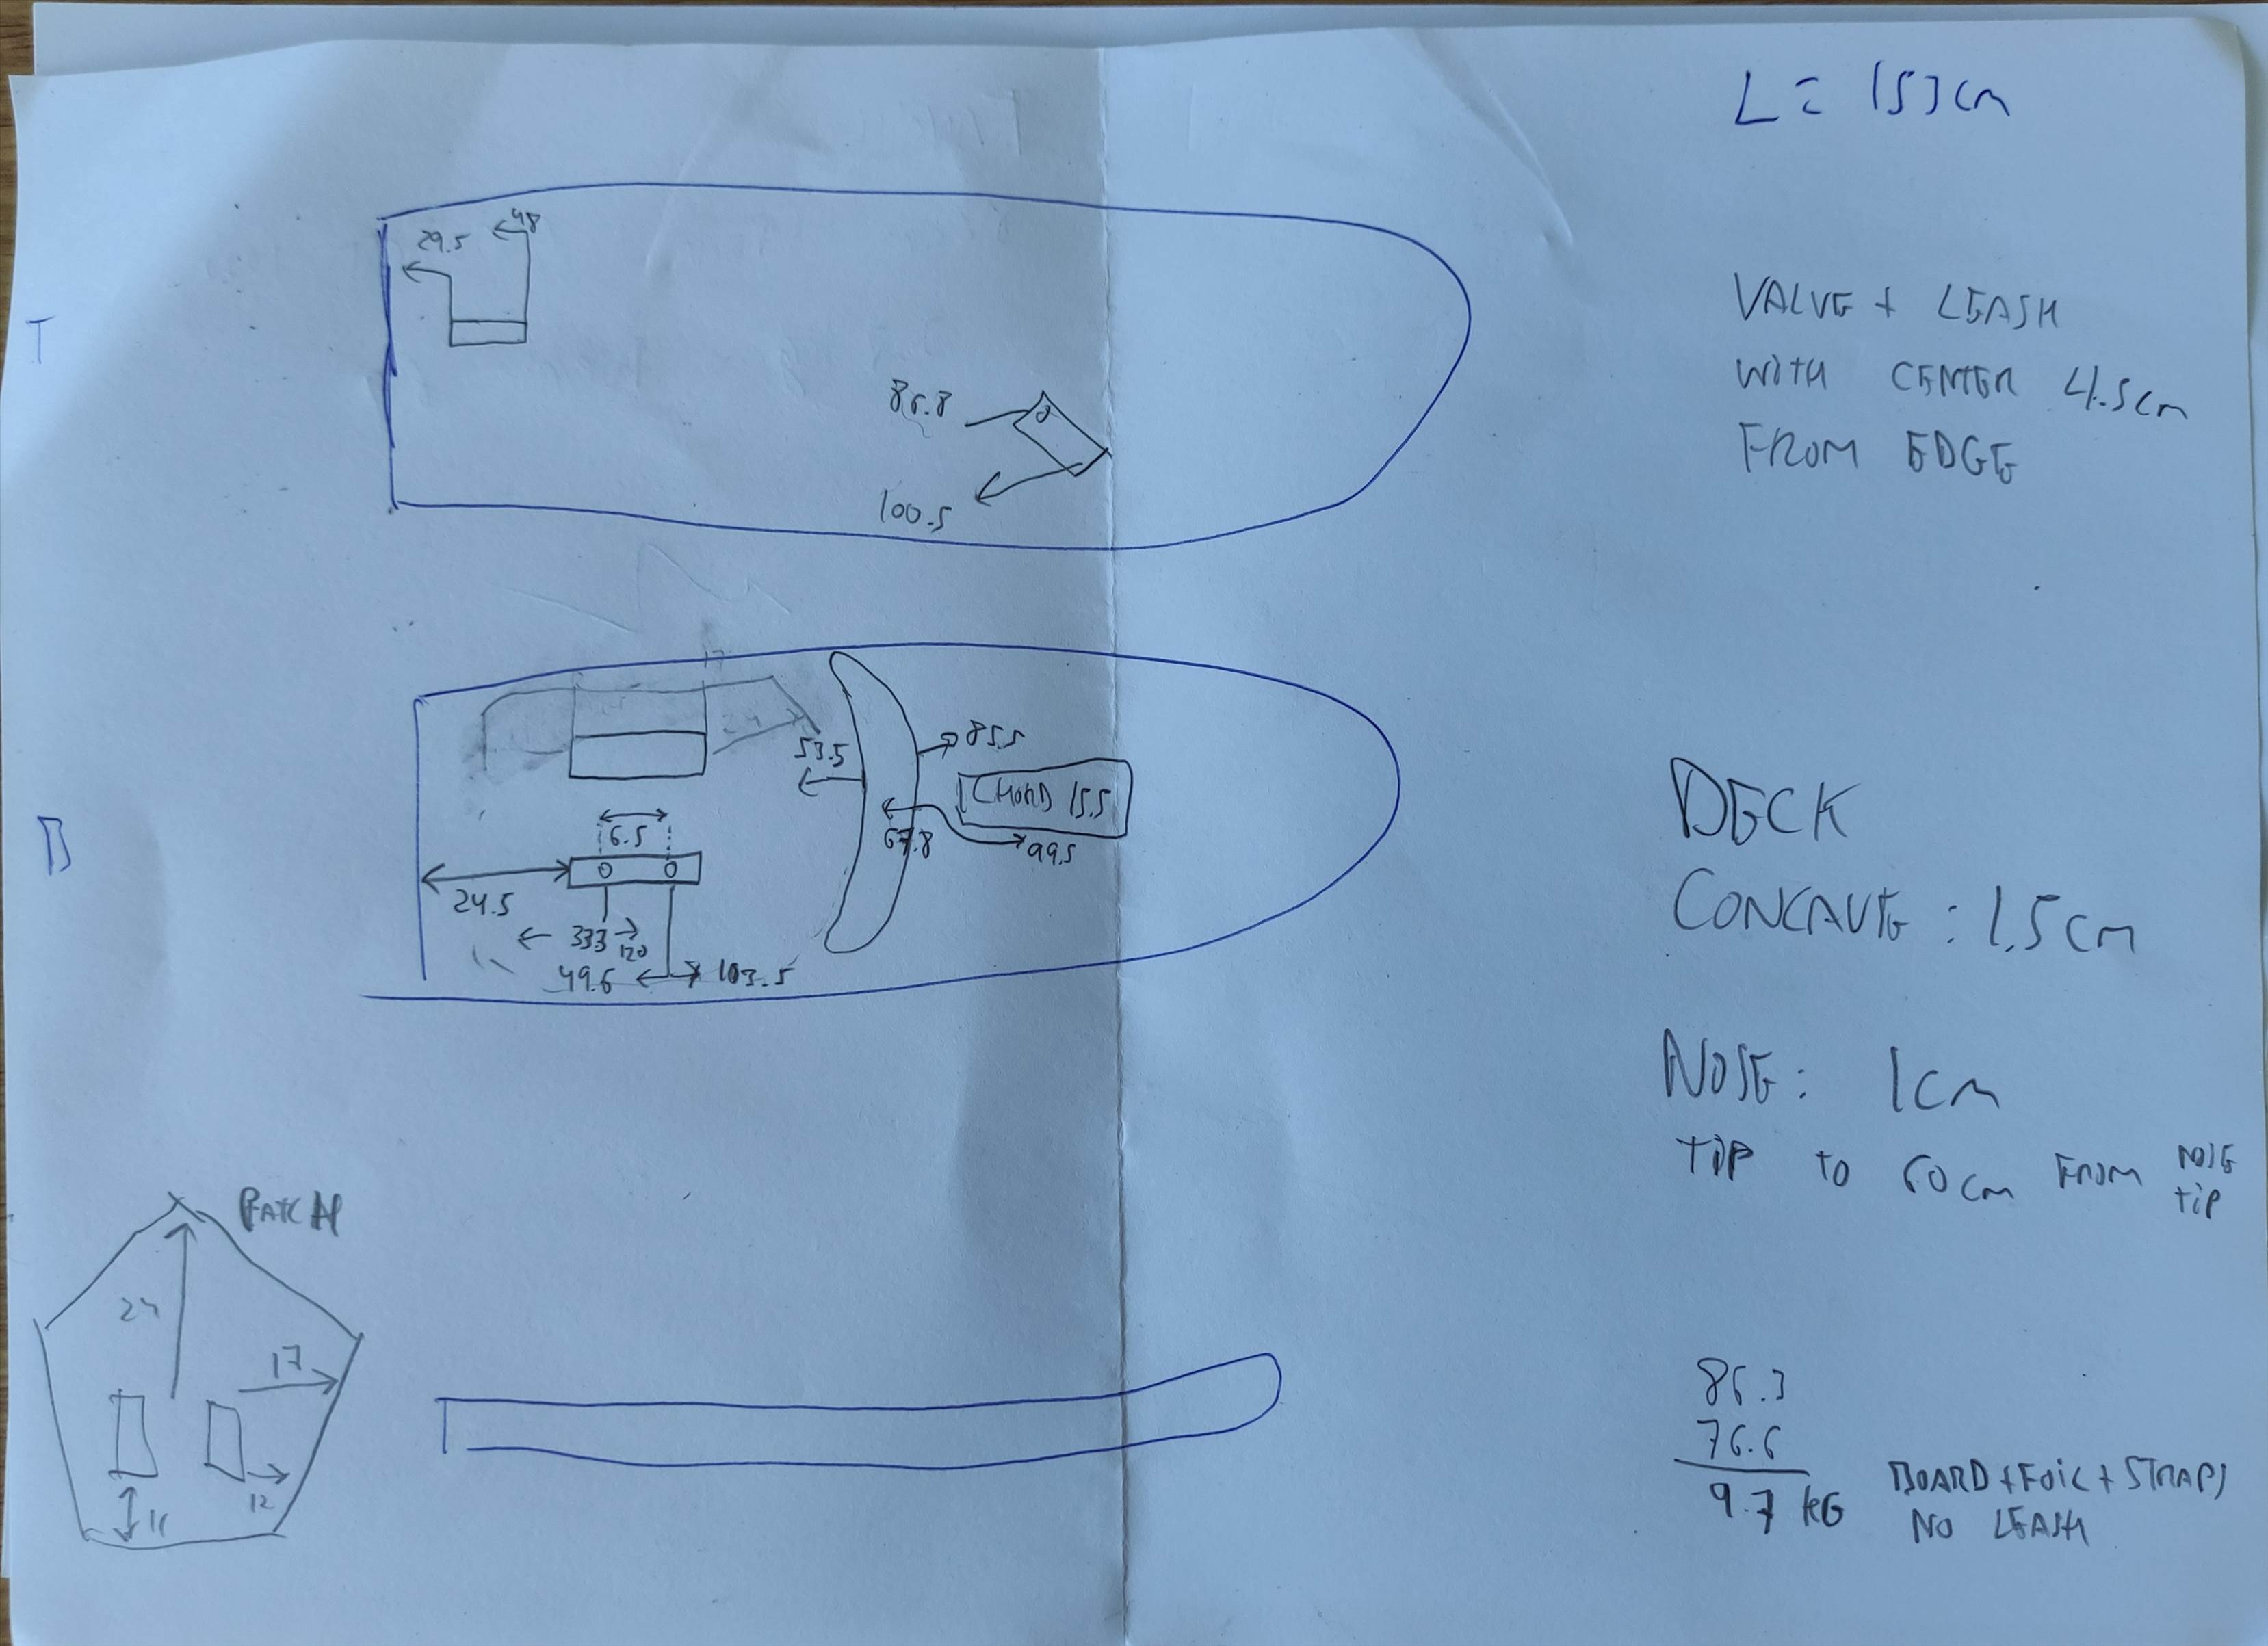 L = 153cm
48
29.5
T
VALVE + LEASH
WITH CENTER 4.5cm
FROM EDGE
86.8
100.5
17
24
53.5
85.5
CHORD 15.5
6.5
67.8
99.5
B
24.5
333
120
49.6
103.5
DECK
CONCAVE: 1.5cm
NOSE: 1cm
TIP TO 60cm FROM NOSE TIP
PATCH
24
17
12
11
86.3
76.6
9.7 KG
BOARD + FOIL + STRAPS
NO LEASH